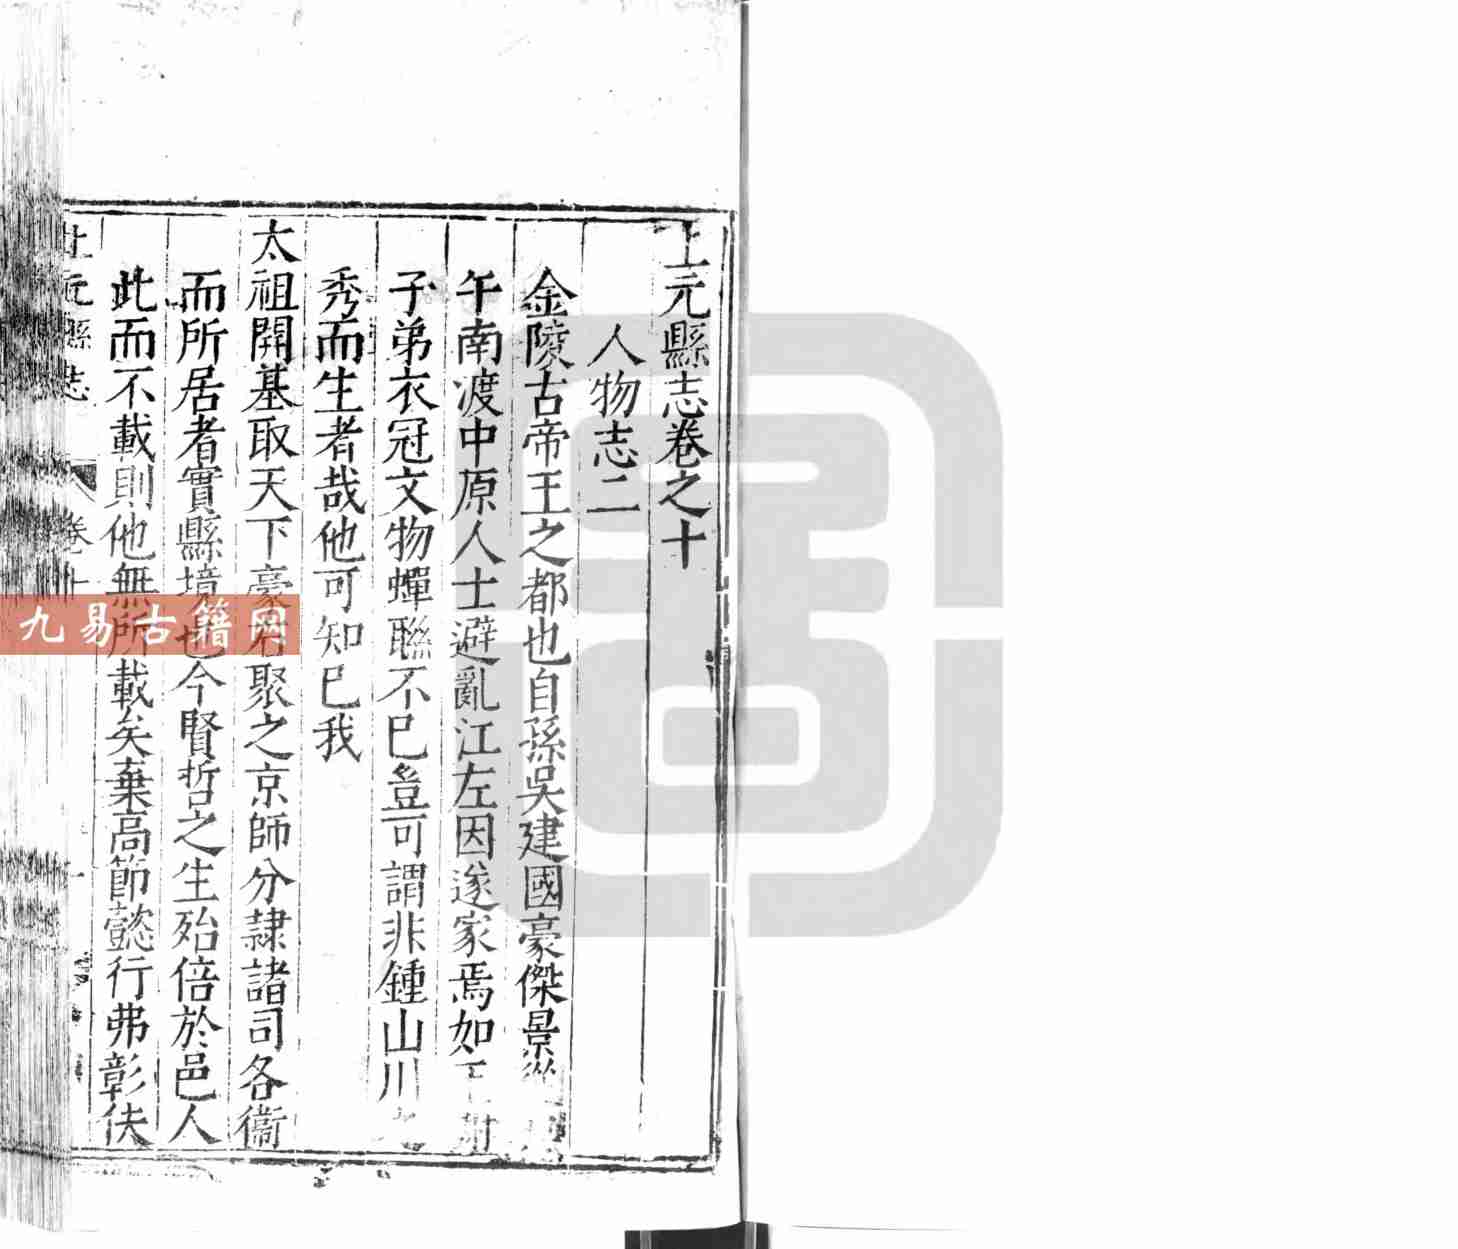 上元縣志卷之十
人物志二
金陵古帝王之都也自孫吳建國豪傑景從
午南渡中原人士避亂江左因遂家焉如王謝
子弟衣冠文物蟬聯不已豈可謂非鍾山川之
秀而生者哉他可知已我
太祖開基取天下豪右聚之京師分隸諸司各衞
而所居者實縣境也今賢哲之生殆倍於邑人
此而不載則他無所載矣棄高節懿行弗彰佚
上元縣志 卷十 一
九易古籍网